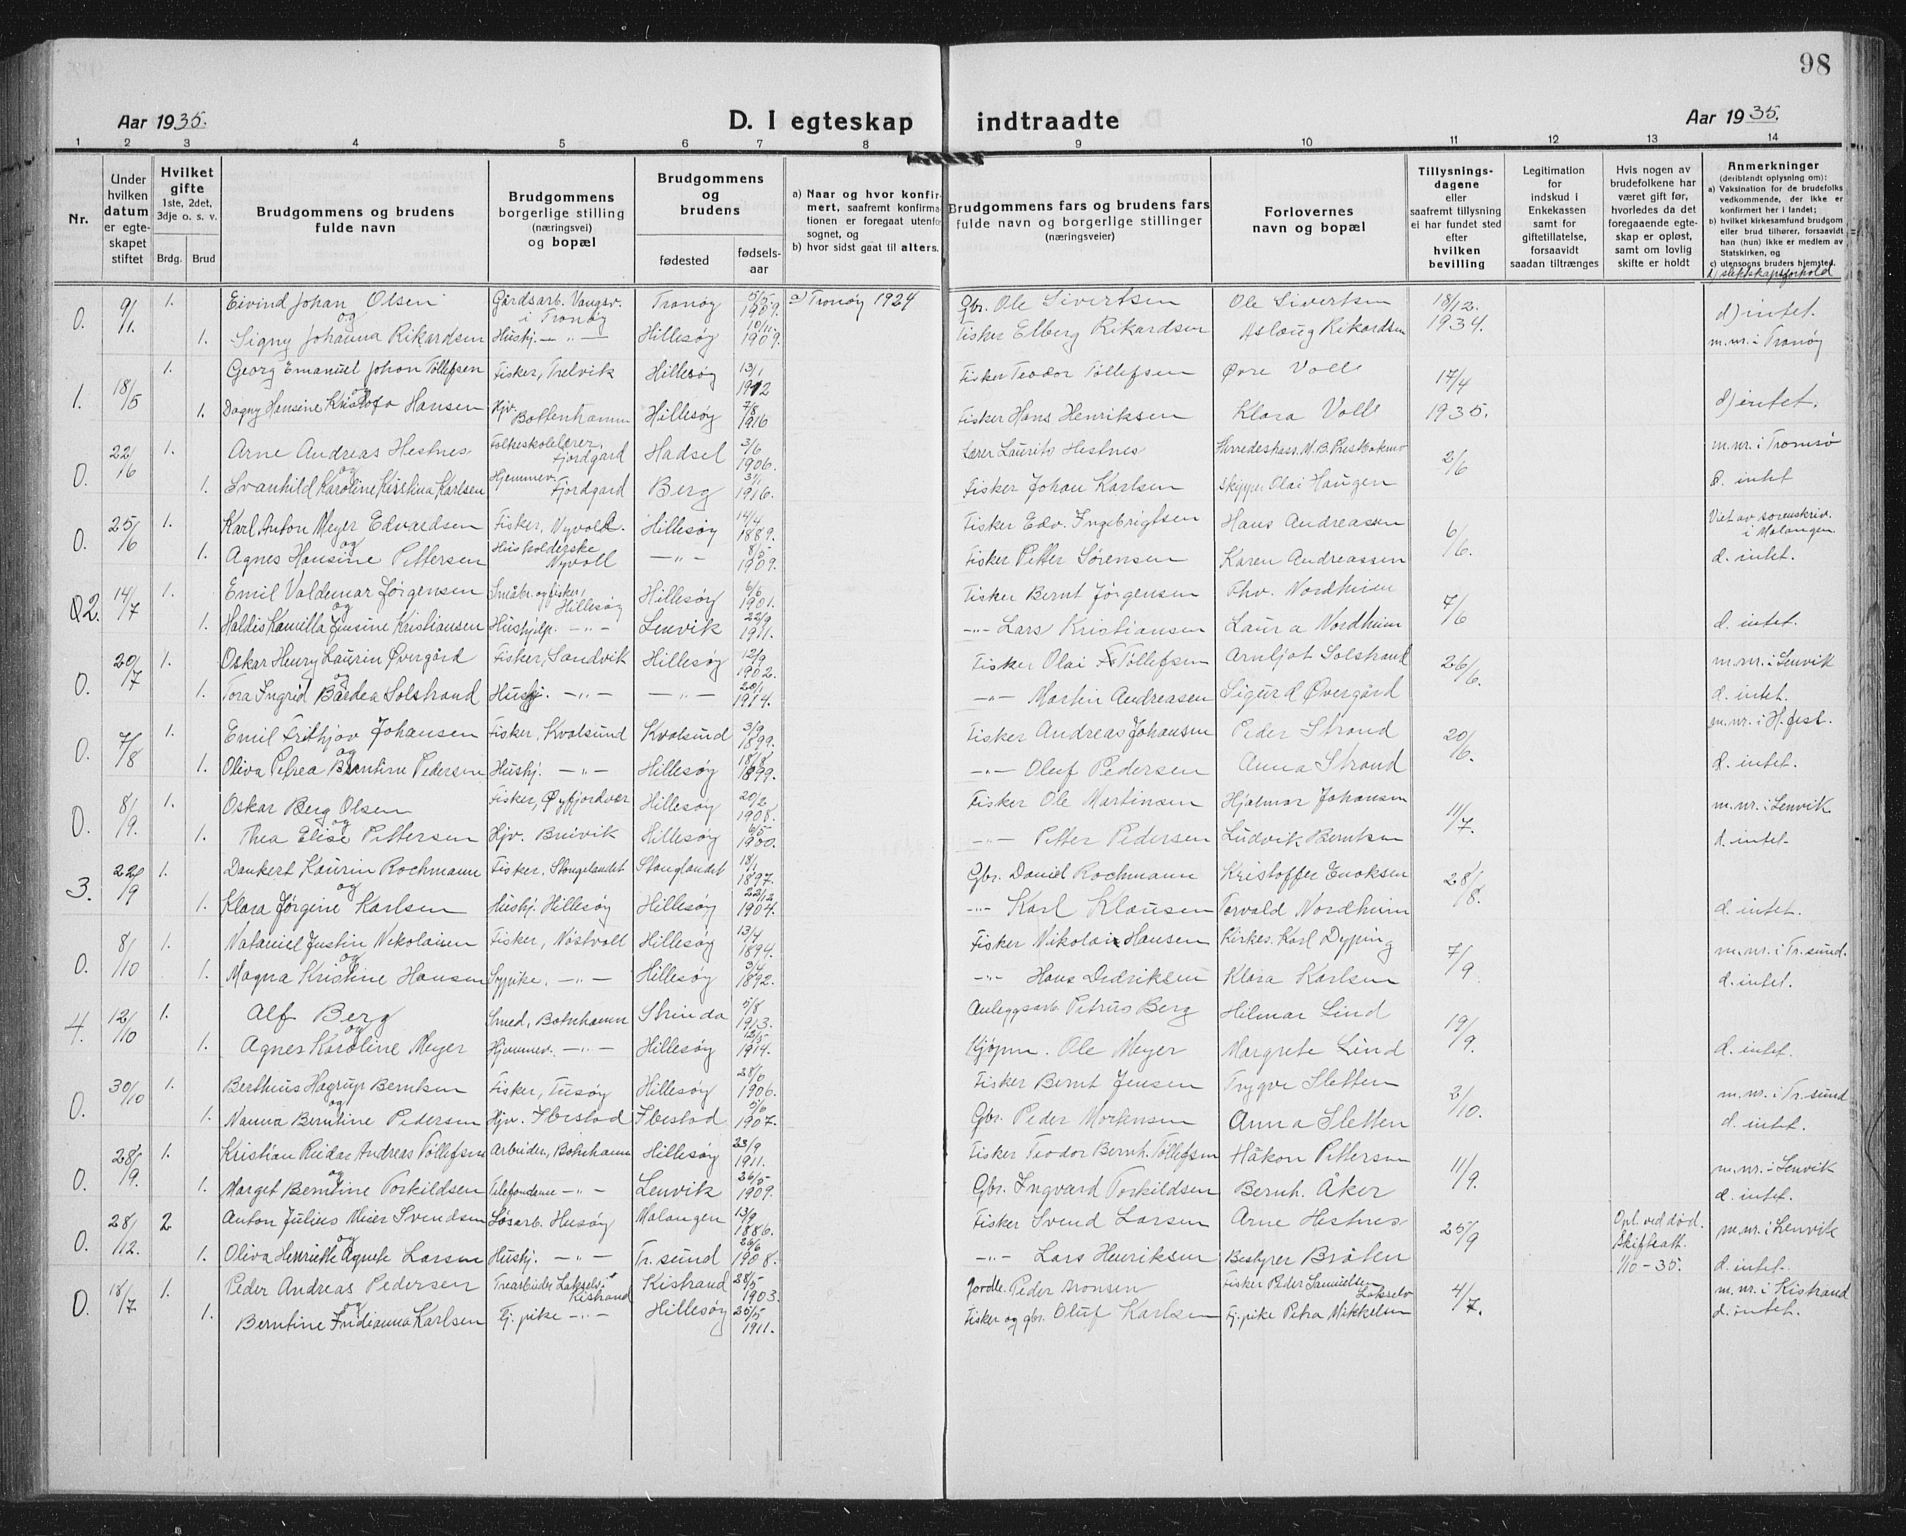 98
Aar 1935.
D. I egteskap indtraadte
Aar 1935.
1 2 3 4 5 6 7 8 9 10 11 12 13 14
Nr.
Under hvilken datum er egteskapet stiftet
Hvilket gifte 1ste, 2det, 3dje o. s. v.
Brdg. Brud
Brudgommens og brudens fulde navn
Brudgommens borgerlige stilling (næringsvei) og bopæl
Brudgommens og brudens
fødested
fødselsaar
a) Naar og hvor konfirmert, saafremt konfirmationen er foregaat utenfor sognet, og
b) hvor sidst gaat til alters.
Brudgommens fars og brudens fars fulde navn og borgerlige stillinger (næringsveier)
Forlovernes navn og bopæl
Tillysningsdagene eller saafremt tillysning ei har fundet sted efter hvilken bevilling
Legitimation for indskud i Enkekassen samt for giftetillatelse, forsaavidt saadan tiltrænges
Hvis nogen av brudefolkene har været gift før, hvorledes da det foregaaende egteskap er opløst, samt om lovlig skifte er holdt
Anmerkninger (deriblandt oplysning om):
a) Vaksination for de brudefolks vedkommende, der ikke er konfirmert her i landet;
b) hvilket kirkesamfund brudgom eller brud tilhører, forsaavidt han (hun) ikke er medlem av Statskirken, og
c) utensogns bruders hjemsted.
d) slektskapsforhold
0. 9/11. 1. Eivind Johan Olsen Gårdsarb. Vangsv. i Tranøy Tranøy 5/5 1909. a) Tranøy 1924 Gbr. Ole Sivertsen Ole Sivertsen 18/12. 1934. d) intet.
og
1. Signy Johanna Rikardsen Hushj. —"— Hillesøy 10/11. 1909. Fisker Elberg Rikardsen Aslaug Rikardsen m.nr. i Tranøy
1. 18/5 1. Georg Emanuel Johan Tøllefsen Fisker, Trelvik Hillesøy 13/1 1912 Fisker Teodor Tøllefsen Øvre Voll 17/4 1935.
og
1. Dagny Hansine Kristofa Hansen Hjv. Bottenhamn Hillesøy 7/8 1916 Fisker Hans Henriksen Klara Voll d) intet.
0. 22/16 1. Arne Andreas Hestnes Folkeskolelærer, Fjordgard Hadsel 3/6 1906. Lærer Laurits Hestnes 2/6 m.nr. i Tromsø
og
1. Svanhild Karoline Kristina Karlsen Hjemmev. Fjordgard Berg 3/1 1916. Fisker Johan Karlsen Skipper Olai Haugen d. intet
0. 25/16 1. Karl Anton Meyer Edvardsen Fisker, Nyvoll. Hillesøy 14/4 1889. Fisker Edv. Ingebrigtsen Hans Andreassen 6/6. Viet av sorenskriv. i Malangen
og
1. Agnes Hansine Pettersen Husholderske Nyvoll —"— 8/5 1909. Fisker Petter Sørensen Karen Andreassen d. intet.
2. 14/7 1. Emil Valdemar Jørgensen Småbr. og fisker, Hillesøy Hillesøy 6/6 1901. Fisker Bernt Jørgensen Thv. Nordheim 7/6
og
1. Haldis Kamilla Jensine Kristiansen Hushjelp. —"— Lenvik 22/9 1911. —"— Lars Kristiansen Laura Nordheim d. intet.
0. 20/7 1. Oskar Henry Laurin Øvergård Fisker, Sandvik Hillesøy 12/9 1902. Fisker Olai Tøllefsen Arnljot Solstrand 26/6. m.nr. i Lenvik
og
1. Tora Ingrid Bardea Solstrand Hushj. —"— —"— 20/1 1914. —"— Martin Andreasen Sigurd Øvergård d. intet.
0. 7/8 1. Emil Frithjov Johansen Fisker, Kvalsund Kvalsund 3/9 1899. Fisker Andreas Johansen Peder Strand 20/6. m.nr. i H.fest.
og
1. Oliva Petrea Berntine Pedersen Hushj. —"— Hillesøy 18/8 1899. —"— Oluf Pedersen Anna Strand d. intet.
0. 8/9. 1. Oskar Berg Olsen Fisker, Øyfjordvær Hillesøy 20/2 1908. Fisker Ole Martinsen Hjalmar Johansen 11/7. m.nr. i Lenvik
og
1. Thea Elise Pettersen Hjv. Breivik Hillesøy 6/5 1900. —"— Petter Pedersen Ludvik Berntsen d. intet.
3. 22/9 1. Dankert Laurin Rochmann Fisker, Stongelandet Stanglandet 18/1 1897. Gbr. Daniel Rochmann Kristoffer Enoksen 28/8.
og
1. Klara Jørgine Karlsen Hushj. Hillesøy Hillesøy 22/12 1904. —"— Karl Klausen Torvald Nordheim d. intet.
0. 8/10 1. Nataniel Justin Nikolaisen Fisker, Nøstvoll Hillesøy 13/4 1894. Fisker Nikolai Hansen Kirkes. Karl Dyping 7/9 m.nr. i Tr.sund.
og
1. Magna Kristine Hansen Sypike. —"— Hillesøy 3/4 1892. —"— Hans Dedriksen Klara Karlsen d. intet.
4. 12/10 1. Alf Berg Smed, Botnhamn Strinda 5/8 1913. Anleggsarb. Petrus Berg Hilmar Lind 19/9.
og
1. Agnes Karoline Meyer Hjemmev. —"— Hillesøy 12/5 1914. Kjøpm. Ole Meyer Margrete Lind d. intet.
0. 30/10 1. Berthius Hagrup Berntsen Fisker, Tusøy Hillesøy 1906. Fisker Bernt Jensen Trygve Sletten 2/10. m.nr. i Tr.sund
og
1. Nanna Berntine Pedersen Hjv. Ibestad Ibestad 1907. Gbr. Peder Mortensen Anna Sletten d. intet.
0. 28/9. 1. Kristian Reidar Andreas Tøllefsen Arbeider, Botnhamn Hillesøy 23/9 1911. Fisker Teodor Bernh. Tøllefsen Håkon Pettersen 11/9. m.nr. i Lenvik
og
1. Marget Berntine Torkildsen Telefondame —"— Lenvik 26/5 1909. Gbr. Ingvard Torkildsen Bernh. Åker d. intet.
0. 28/12. 2 Anton Julius Meier Svendsen Løsarb. Husøy Malangen 13/9 1886. Fisker Svend Larsen Arne Hestnes 25/9 Opl. ved død. Skifteatt. 1/10-35. m.nr. i Lenvik
og
1. Oliva Henriette Agnete Larsen Hushj. —"— Tr.sund 26/6 1908. —"— Lars Henriksen Bestyrer Bråten d. intet.
0. 18/7 1. Peder Andreas Pedersen Trearbeider Lakselv i Kistrand Kistrand 28/5 1903. Jordbr. Peder Aronsen Fisker Peder Samuelsen Lakselv 4/7. m.nr. i Kistrand
og
1. Berntine Indianna Karlsen Tj.pike —"— Hillesøy 25/5 1911. Fisker og gbr. Oluf Karlsen Tj.pike Petra Mikkelsen d. intet.